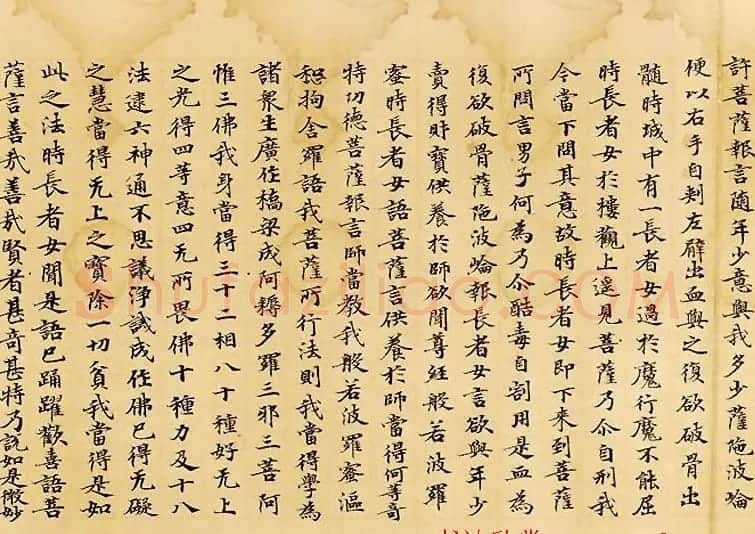 許菩薩報言隨年少意與我多少薩陁波崘
便以右手自刺左臂出血與之復欲破骨出
髓時城中有一長者女過於魔行魔不能屈
時長者女於樓觀上遥見菩薩乃尒自刑我
今當下問其意故時長者女即下來到菩薩
所問言男子何為乃尒酷毒自割用是血為
復欲破骨薩陁波崘報長者女言欲與年少
賣得財寶供養於師欲聞尊經般若波羅
蜜時長者女語菩薩言供養於師當得何等奇
特功德菩薩報言師當教我般若波羅蜜漚
惒拘舍羅語我菩薩所行法則我當得學為
諸衆生廣作橋梁成阿耨多羅三耶三菩阿
惟三佛我身當得三十二相八十種好无上
之光得四等意四无所畏佛十種力及十八
法逮六神通不思議淨誡成作佛已得无礙
之慧當得无上之寶除一切貧我當得是如
此之法時長者女聞是語已踊躍歡喜語菩
薩言善哉善哉賢者甚奇甚特乃說如是微妙
Shufaziliao.COM